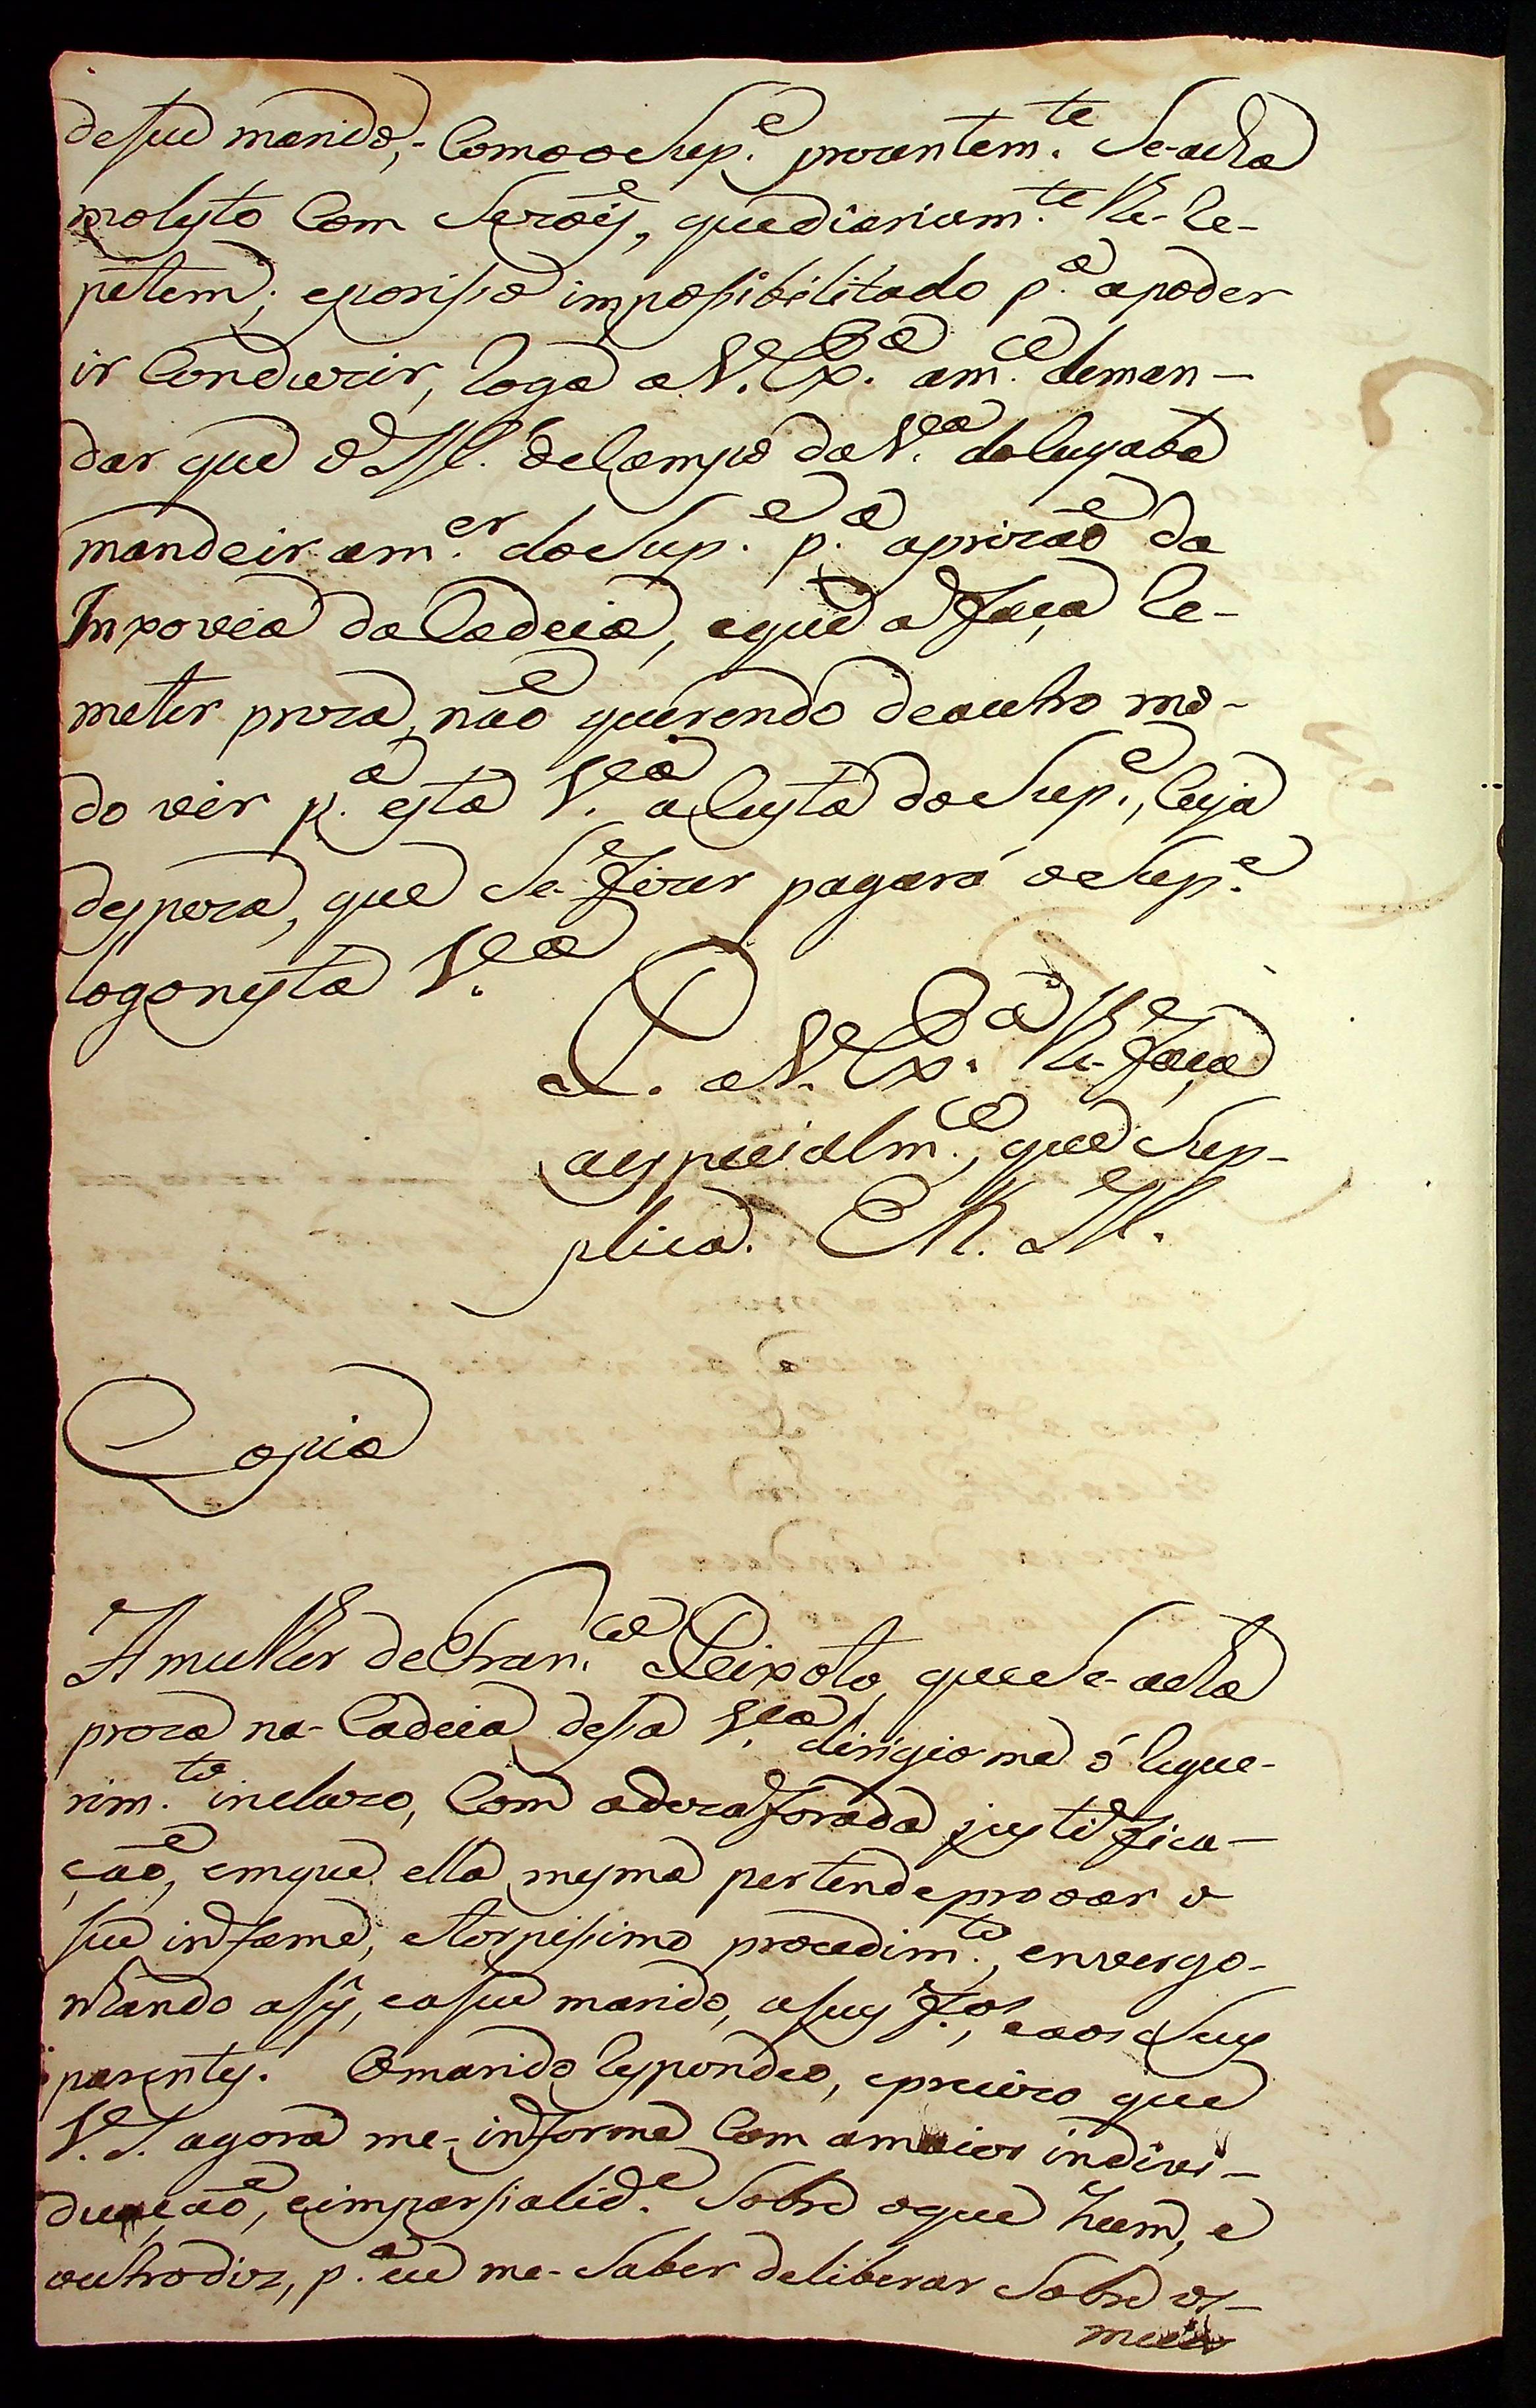 deseu marido, Como o Sup.e prezentem.te Se-acha
molesto Com Sezoẽs, que diariam.te lhe-Re-
petem; epor isso impossibilitado p.a apoder
ir Conduzir, Roga a V. Ex.a am.ce deman-
dar que o M. de Campo da V.a
mande ir am.er do Sup.e p.a aprizaõ da
Inxovia da Cadeia, e que a faça Re-
meter preza, naõ querendo deoutro mo-
do vir p.a esta V.a a Custa do Sup.e, Cuja
despeza, que Se-fizer pagará o Sup.e
logo nesta V.a
P. a V. Ex.a lhe-faça
aespecialm.ce, que Sup-
plica. E R. M.
Copia
A mulher de Fran.co Peixoto, que Se-acha
preza na-Cadeia dessa V.a dirigio me o Reque-
rim.to incluzo, Com adezaforada justifica-
çaõ, emque ella mesma pertende provar o
seu infame, etorpissimo procedim.to, envergo-
nhando assy, easeu marido, aseus f.os, eaos Seus
parentes. O marido Respondeo, eprecizo que
V. S. agora me-informe Com amaior indivi-
duaçaõ, eimparsialid.e Sobre oque hum, e
outro diz, p.a eu me-Saber deliberar Sobre os-